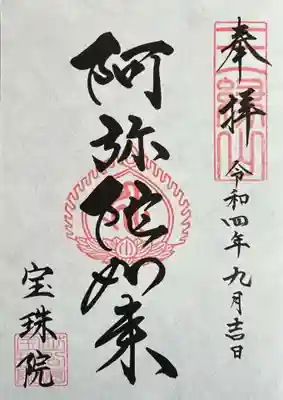 奉拝
令和四年九月吉日
阿弥陀如来
宝珠院
三縁山